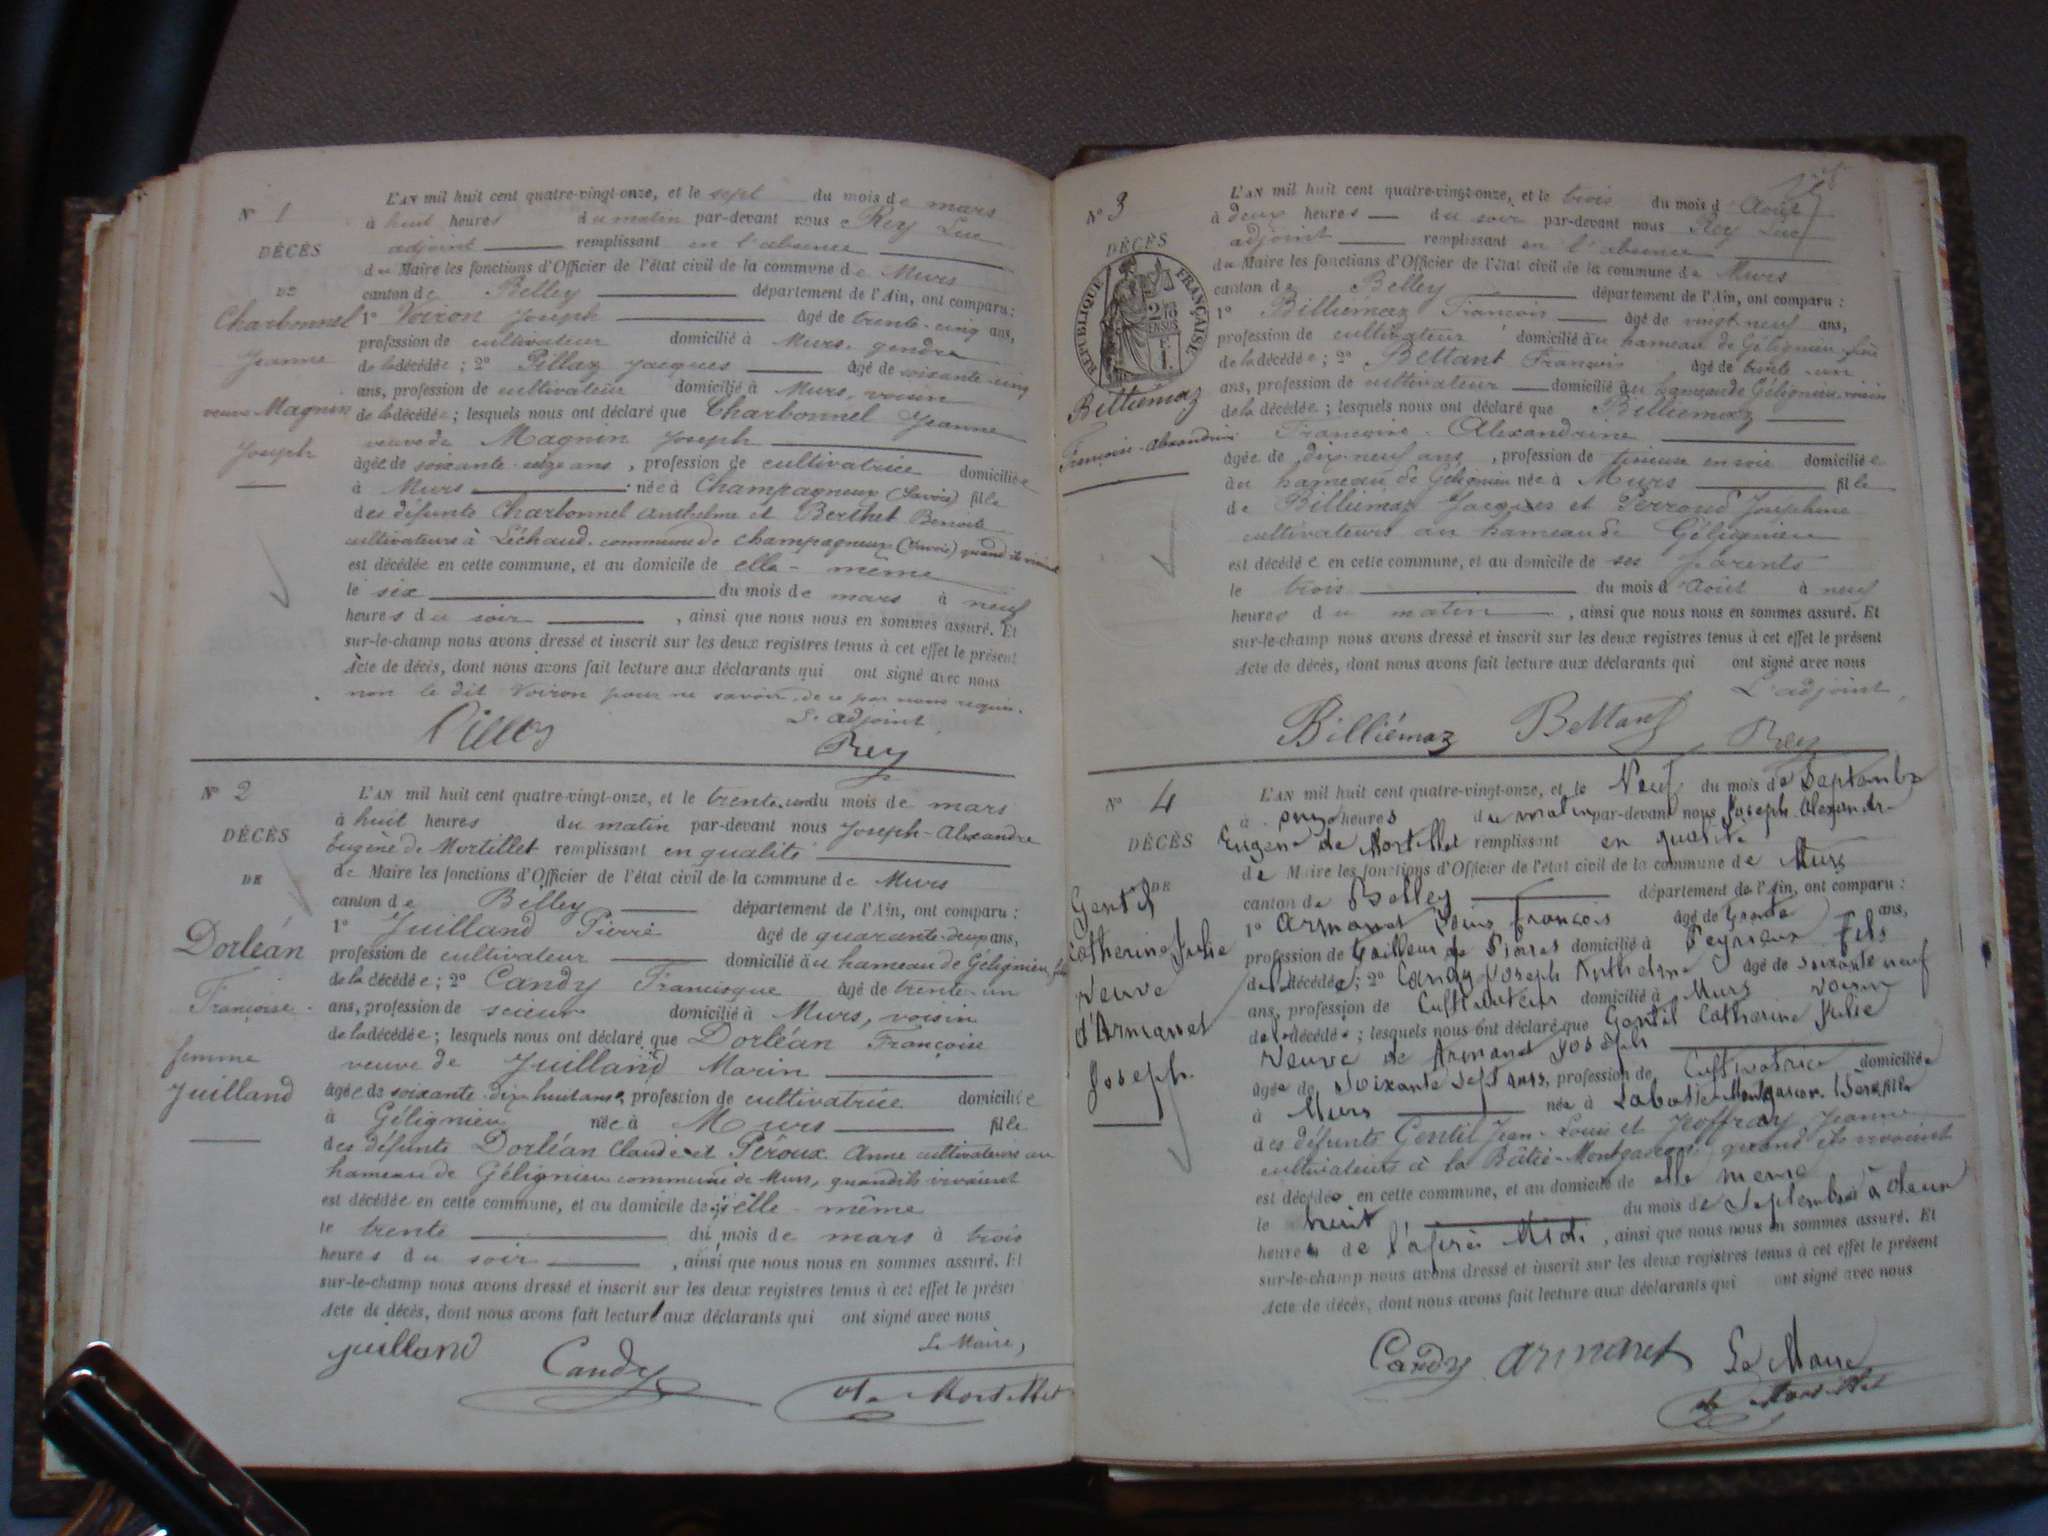 N° 1
DÉCÈS
DE
Charbonnel
Jeanne
veuve Magnin
Joseph
L'AN mil huit cent quatre-vingt-onze, et le sept du mois de mars
à huit heures du matin par-devant nous Rey Luc
adjoint remplissant en l'absence
du Maire les fonctions d'Officier de l'état civil de la commune de Murs
canton de Belley département de l'Ain, ont comparu :
1° Voiron Joseph âgé de trente-cinq ans,
profession de cultivateur domicilié à Murs, gendre
de la décédée ; 2° Pillaz Jacques âgé de soixante-cinq
ans, profession de cultivateur domicilié à Murs, voisin
de la décédée ; lesquels nous ont déclaré que Charbonnel Jeanne
veuve de Magnin Joseph
âgée de soixante ans, profession de cultivatrice domiciliée
à Murs née à Champagneux (Savoie) fille
des défunts Charbonnel Anthelme et Berthet Benoite
cultivateurs à Léchaud, commune de Champagneux (Savoie) quand ils vivaient
est décédée en cette commune, et au domicile de elle-même
le six du mois de mars à neuf
heures du soir, ainsi que nous nous en sommes assuré. Et
sur-le-champ nous avons dressé et inscrit sur les deux registres tenus à cet effet le présent
Acte de décès, dont nous avons fait lecture aux déclarants qui ont signé avec nous
non le dit Voiron pour ne savoir de ce par nous requis.
L'adjoint
Rey
N° 2
DÉCÈS
DE
Dorléan
Françoise
femme
Juilland
L'AN mil huit cent quatre-vingt-onze, et le trente-un du mois de mars
à huit heures du matin par-devant nous Joseph-Alexandre
Eugène de Mortillet remplissant en qualité
de Maire les fonctions d'Officier de l'état civil de la commune de Murs
canton de Belley département de l'Ain, ont comparu :
1° Juilland Pierre âgé de quarante-deux ans,
profession de cultivateur domicilié au hameau de Gélignieu, fils
de la décédée ; 2° Candy Francisque âgé de trente-un
ans, profession de scieur domicilié à Murs, voisin
de la décédée ; lesquels nous ont déclaré que Dorléan Françoise
veuve de Juilland Marin
âgée de soixante-dix-huit ans, profession de cultivatrice domiciliée
à Gélignieu née à Murs fille
des défunts Dorléan Claude et Péroux Anne cultivateurs au
hameau de Gélignieu commune de Murs, quand ils vivaient
est décédée en cette commune, et au domicile de elle-même
le trente du mois de mars à trois
heures du soir, ainsi que nous nous en sommes assuré. Et
sur-le-champ nous avons dressé et inscrit sur les deux registres tenus à cet effet le présent
Acte de décès, dont nous avons fait lecture aux déclarants qui ont signé avec nous
Le Maire,
Juilland Candy de Mortillet
N° 3
DÉCÈS
RÉPUBLIQUE FRANÇAISE
Billiémaz
Françoise-Alexandrine
L'AN mil huit cent quatre-vingt-onze, et le trois du mois d'Août
à deux heures du soir par-devant nous Rey Luc
adjoint remplissant en l'absence
du Maire les fonctions d'Officier de l'état civil de la commune de Murs
canton de Belley département de l'Ain, ont comparu :
1° Billiémaz François âgé de vingt-neuf ans,
profession de cultivateur domicilié au hameau de Gélignieu, frère
de la décédée ; 2° Bettant François âgé de trente-un
ans, profession de cultivateur domicilié au hameau de Gélignieu, voisin
de la décédée ; lesquels nous ont déclaré que Billiémaz
Françoise-Alexandrine
âgée de dix-neuf ans, profession de tisseuse en soie domiciliée
au hameau de Gélignieu née à Murs fille
de Billiémaz Jacques et Perroud Joséphine
cultivateurs au hameau de Gélignieu
est décédée en cette commune, et au domicile de ses parents
le trois du mois d'Août à neuf
heures du matin, ainsi que nous nous en sommes assuré. Et
sur-le-champ nous avons dressé et inscrit sur les deux registres tenus à cet effet le présent
Acte de décès, dont nous avons fait lecture aux déclarants qui ont signé avec nous
L'adjoint,
Billiémaz Bettant Rey
N° 4
DÉCÈS
DE
Gentil
Catherine Julie
Veuve
d'Armanet
Joseph.
L'AN mil huit cent quatre-vingt-onze, et le Neuf du mois de Septembre
à onze heures du matin par-devant nous Joseph Alexandre-
Eugène de Mortillet remplissant en qualité
de Maire les fonctions d'Officier de l'état civil de la commune de Murs
canton de Belley département de l'Ain, ont comparu :
1° Armanet Louis François âgé de trente ans,
profession de tailleur de Pierres domicilié à Peyrieux fils
de la décédée ; 2° Candy Joseph Anthelme âgé de soixante neuf
ans, profession de Cultivateur domicilié à Murs voisin
de la décédée ; lesquels nous ont déclaré que Gentil Catherine Julie
Veuve de Armanet Joseph
âgée de soixante sept ans, profession de Cultivatrice domiciliée
à Murs née à Labatie-Montgascon (Isère) fille
des défunts Gentil Jean-Louis et Joffray Jeanne
cultivateurs à la Bâtie-Montgascon, quand ils vivaient
est décédée en cette commune, et au domicile de elle même
le huit du mois de Septembre à deux
heures de l'après Midi, ainsi que nous nous en sommes assuré. Et
sur-le-champ nous avons dressé et inscrit sur les deux registres tenus à cet effet le présent
Acte de décès, dont nous avons fait lecture aux déclarants qui ont signé avec nous
Candy Armanet Le Maire
de Mortillet